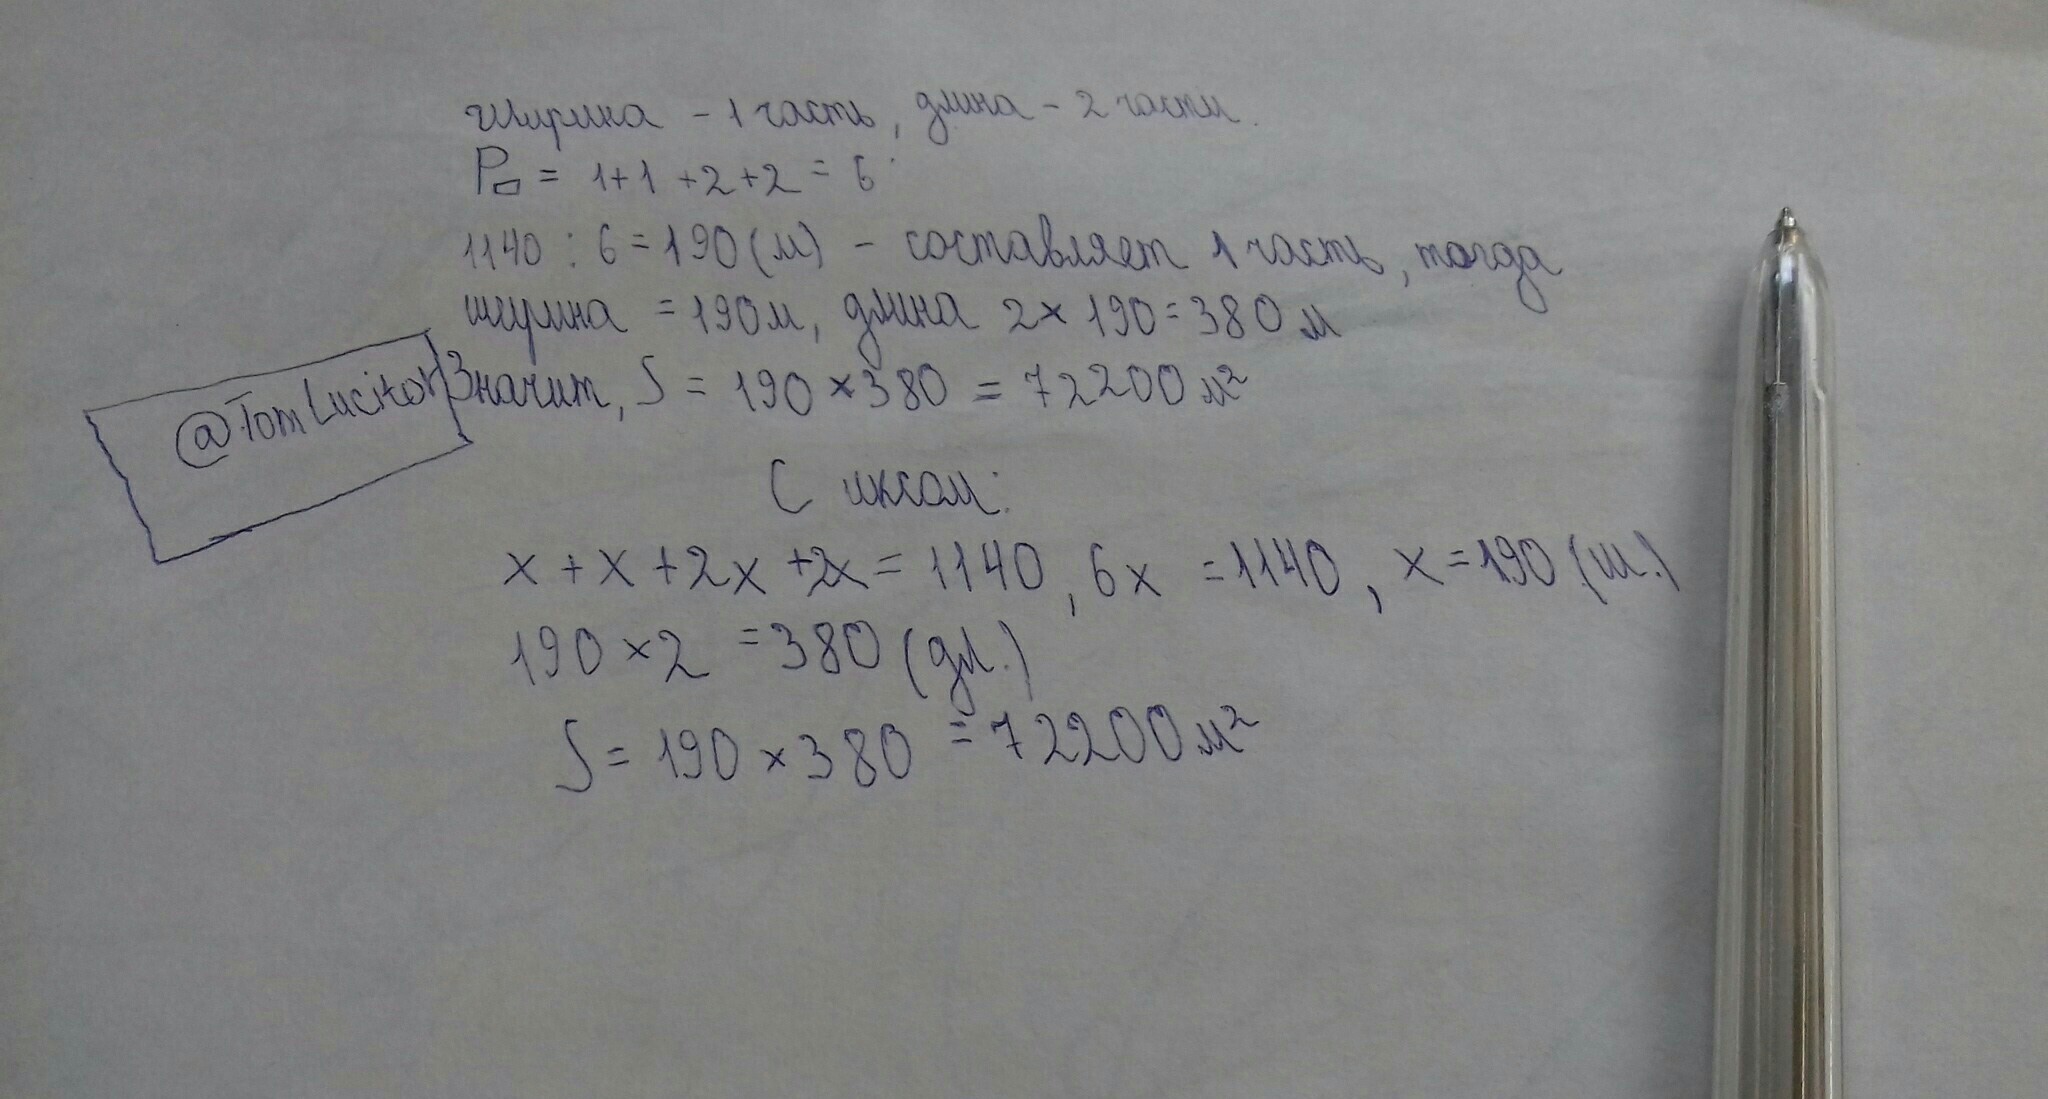 Ширина - 1 часть, длина - 2 части.
P▭ = 1+1+2+2 = 6
1140 : 6 = 190 (м) - составляет 1 часть, тогда
ширина = 190м, длина 2×190=380м
@TomLucitor
Значит, S = 190×380 = 72200м²
С иксом:
x+x+2x+2x=1140, 6x=1140, x=190 (ш.)
190×2=380 (дл.)
S=190×380=72200м²